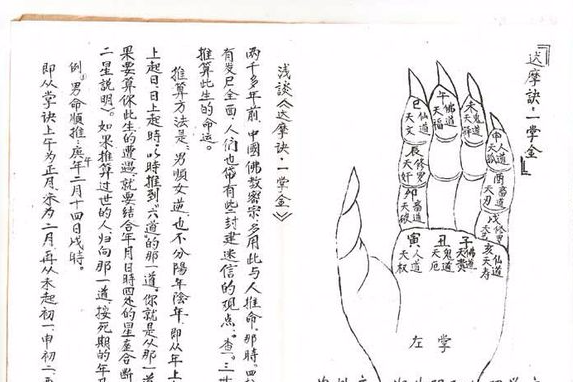 『达摩訣·一掌金』
巳 仙道 天文
午 佛道 天福
未 鬼道 天驛
申 人道 天孤
辰 修羅 天奸
酉 畜道 天刃
卯 畜道 天破
戌 修罗
寅 人道 天权
丑 鬼道 天厄
子 佛道 天貴
亥 仙道 天寿
左掌
浅談《达摩訣·一掌金》
兩千多年前,中國佛教密宗,多用此与人推命,那時,四
有失已全面,人们也帶有些封建迷信的观点。查。三
推算此生的命运。
推算方法是:男順女逆,也不分陽年陰年,即从年上
上起日,日上起時,以時推到"六道的那一道。你就是从那一道
果要算你此生的遭遇,就要結合年月日時四处的星查合断
二星説明。如果推算过世的人归向那一道,按死期的年月
例。男命順推:庚午年二月十四日戌時。
即从掌訣上午为正月,未为二月,再从未起初一,申初二,酉